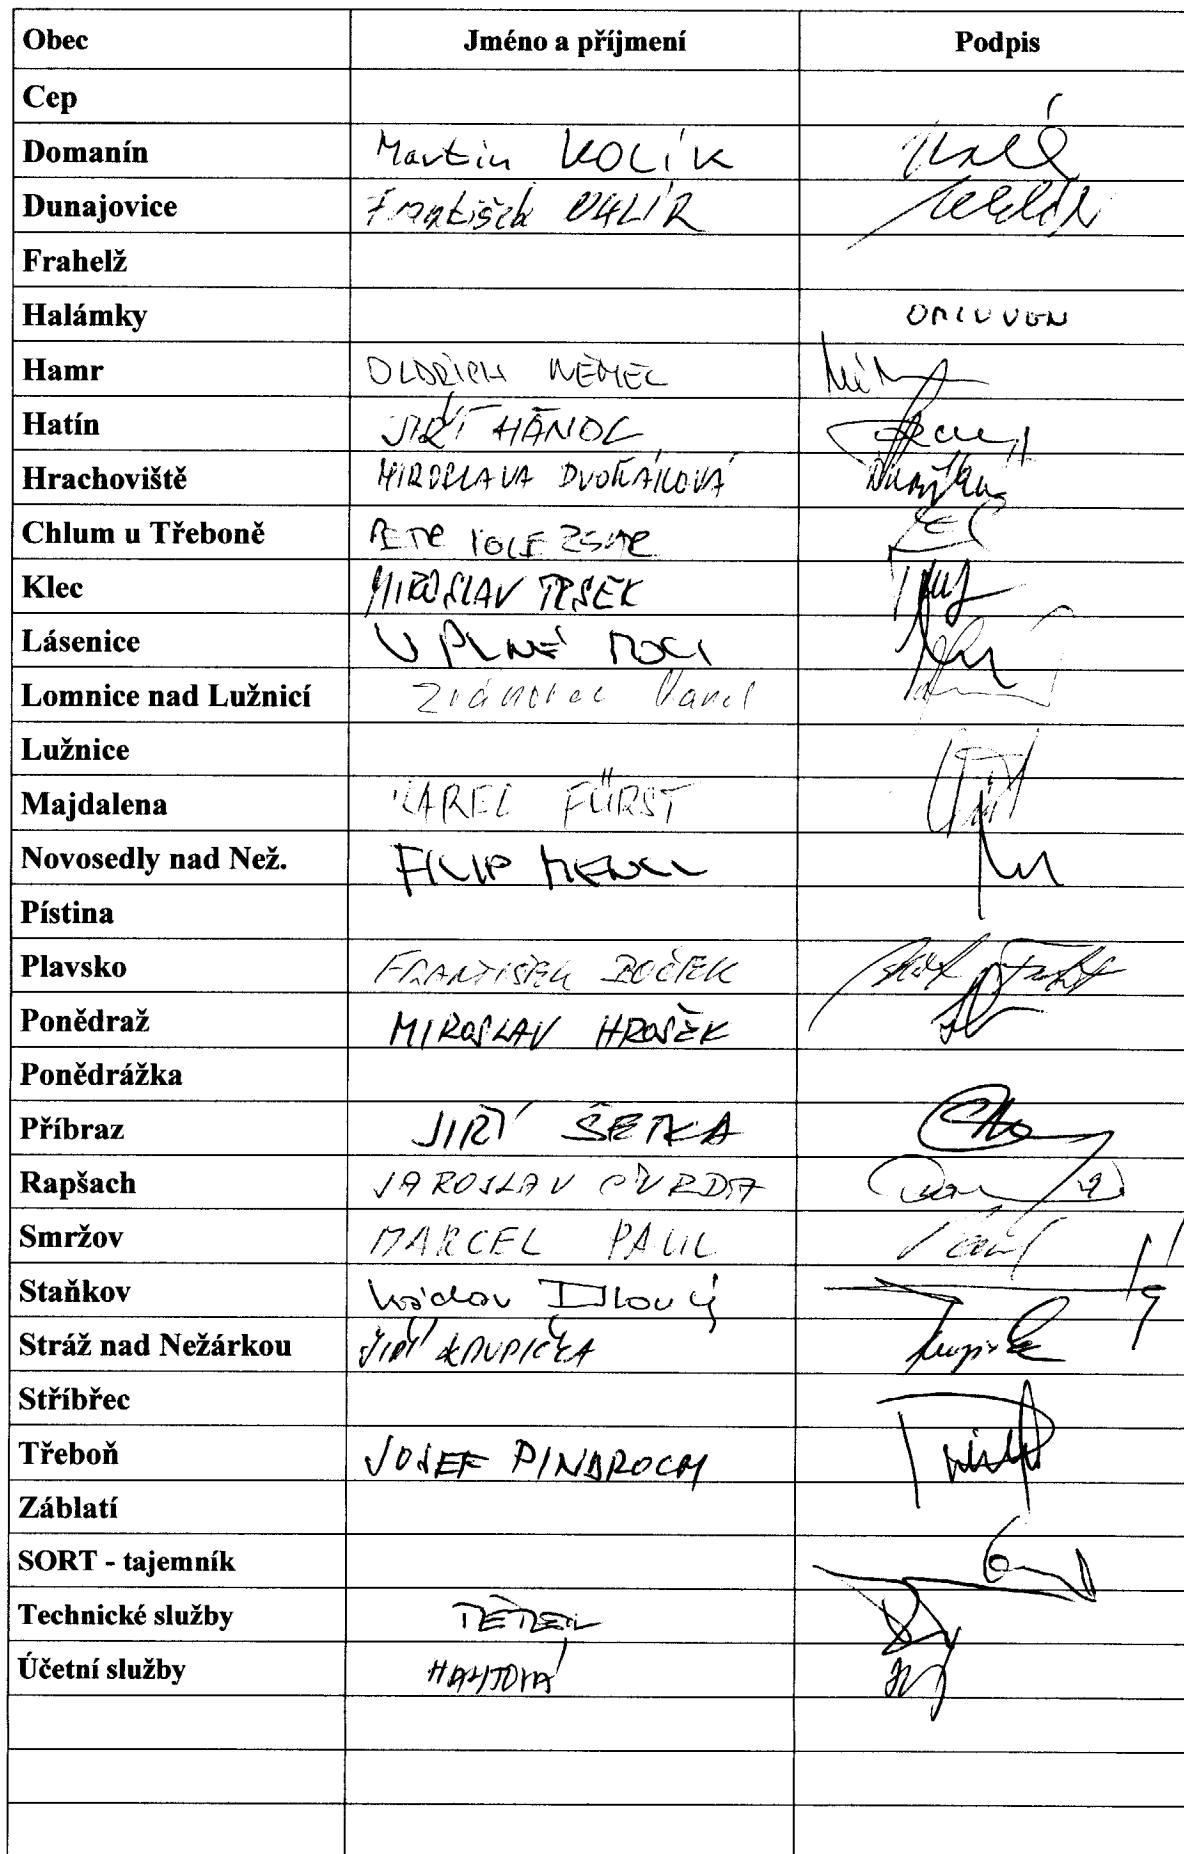 Obec Jméno a příjmení Podpis
Cep
Domanín Martin KOLÍK
Dunajovice František UHLÍŘ
Frahelž
Halámky OMLUVEN
Hamr OLDŘICH NĚMEC
Hatín JIŘÍ HÁNDL
Hrachoviště MIROSLAVA DVOŘÁKOVÁ
Chlum u Třeboně PETR
Klec MIROSLAV TRSEK
Lásenice V PLNÉ MOCI
Lomnice nad Lužnicí Karel
Lužnice
Majdalena KAREL FÜRST
Novosedly nad Než. FILIP
Pístina
Plavsko FRANTIŠEK BOČEK
Ponědraž MIROSLAV HROŠEK
Ponědrážka
Příbraz JIŘÍ ŠETKA
Rapšach JAROSLAV
Smržov MARCEL PAUL
Staňkov Václav Dlouhý
Stráž nad Nežárkou JIŘÍ KRUPIČKA
Stříbřec
Třeboň JOSEF PINDROCH
Záblatí
SORT - tajemník
Technické služby
Účetní služby